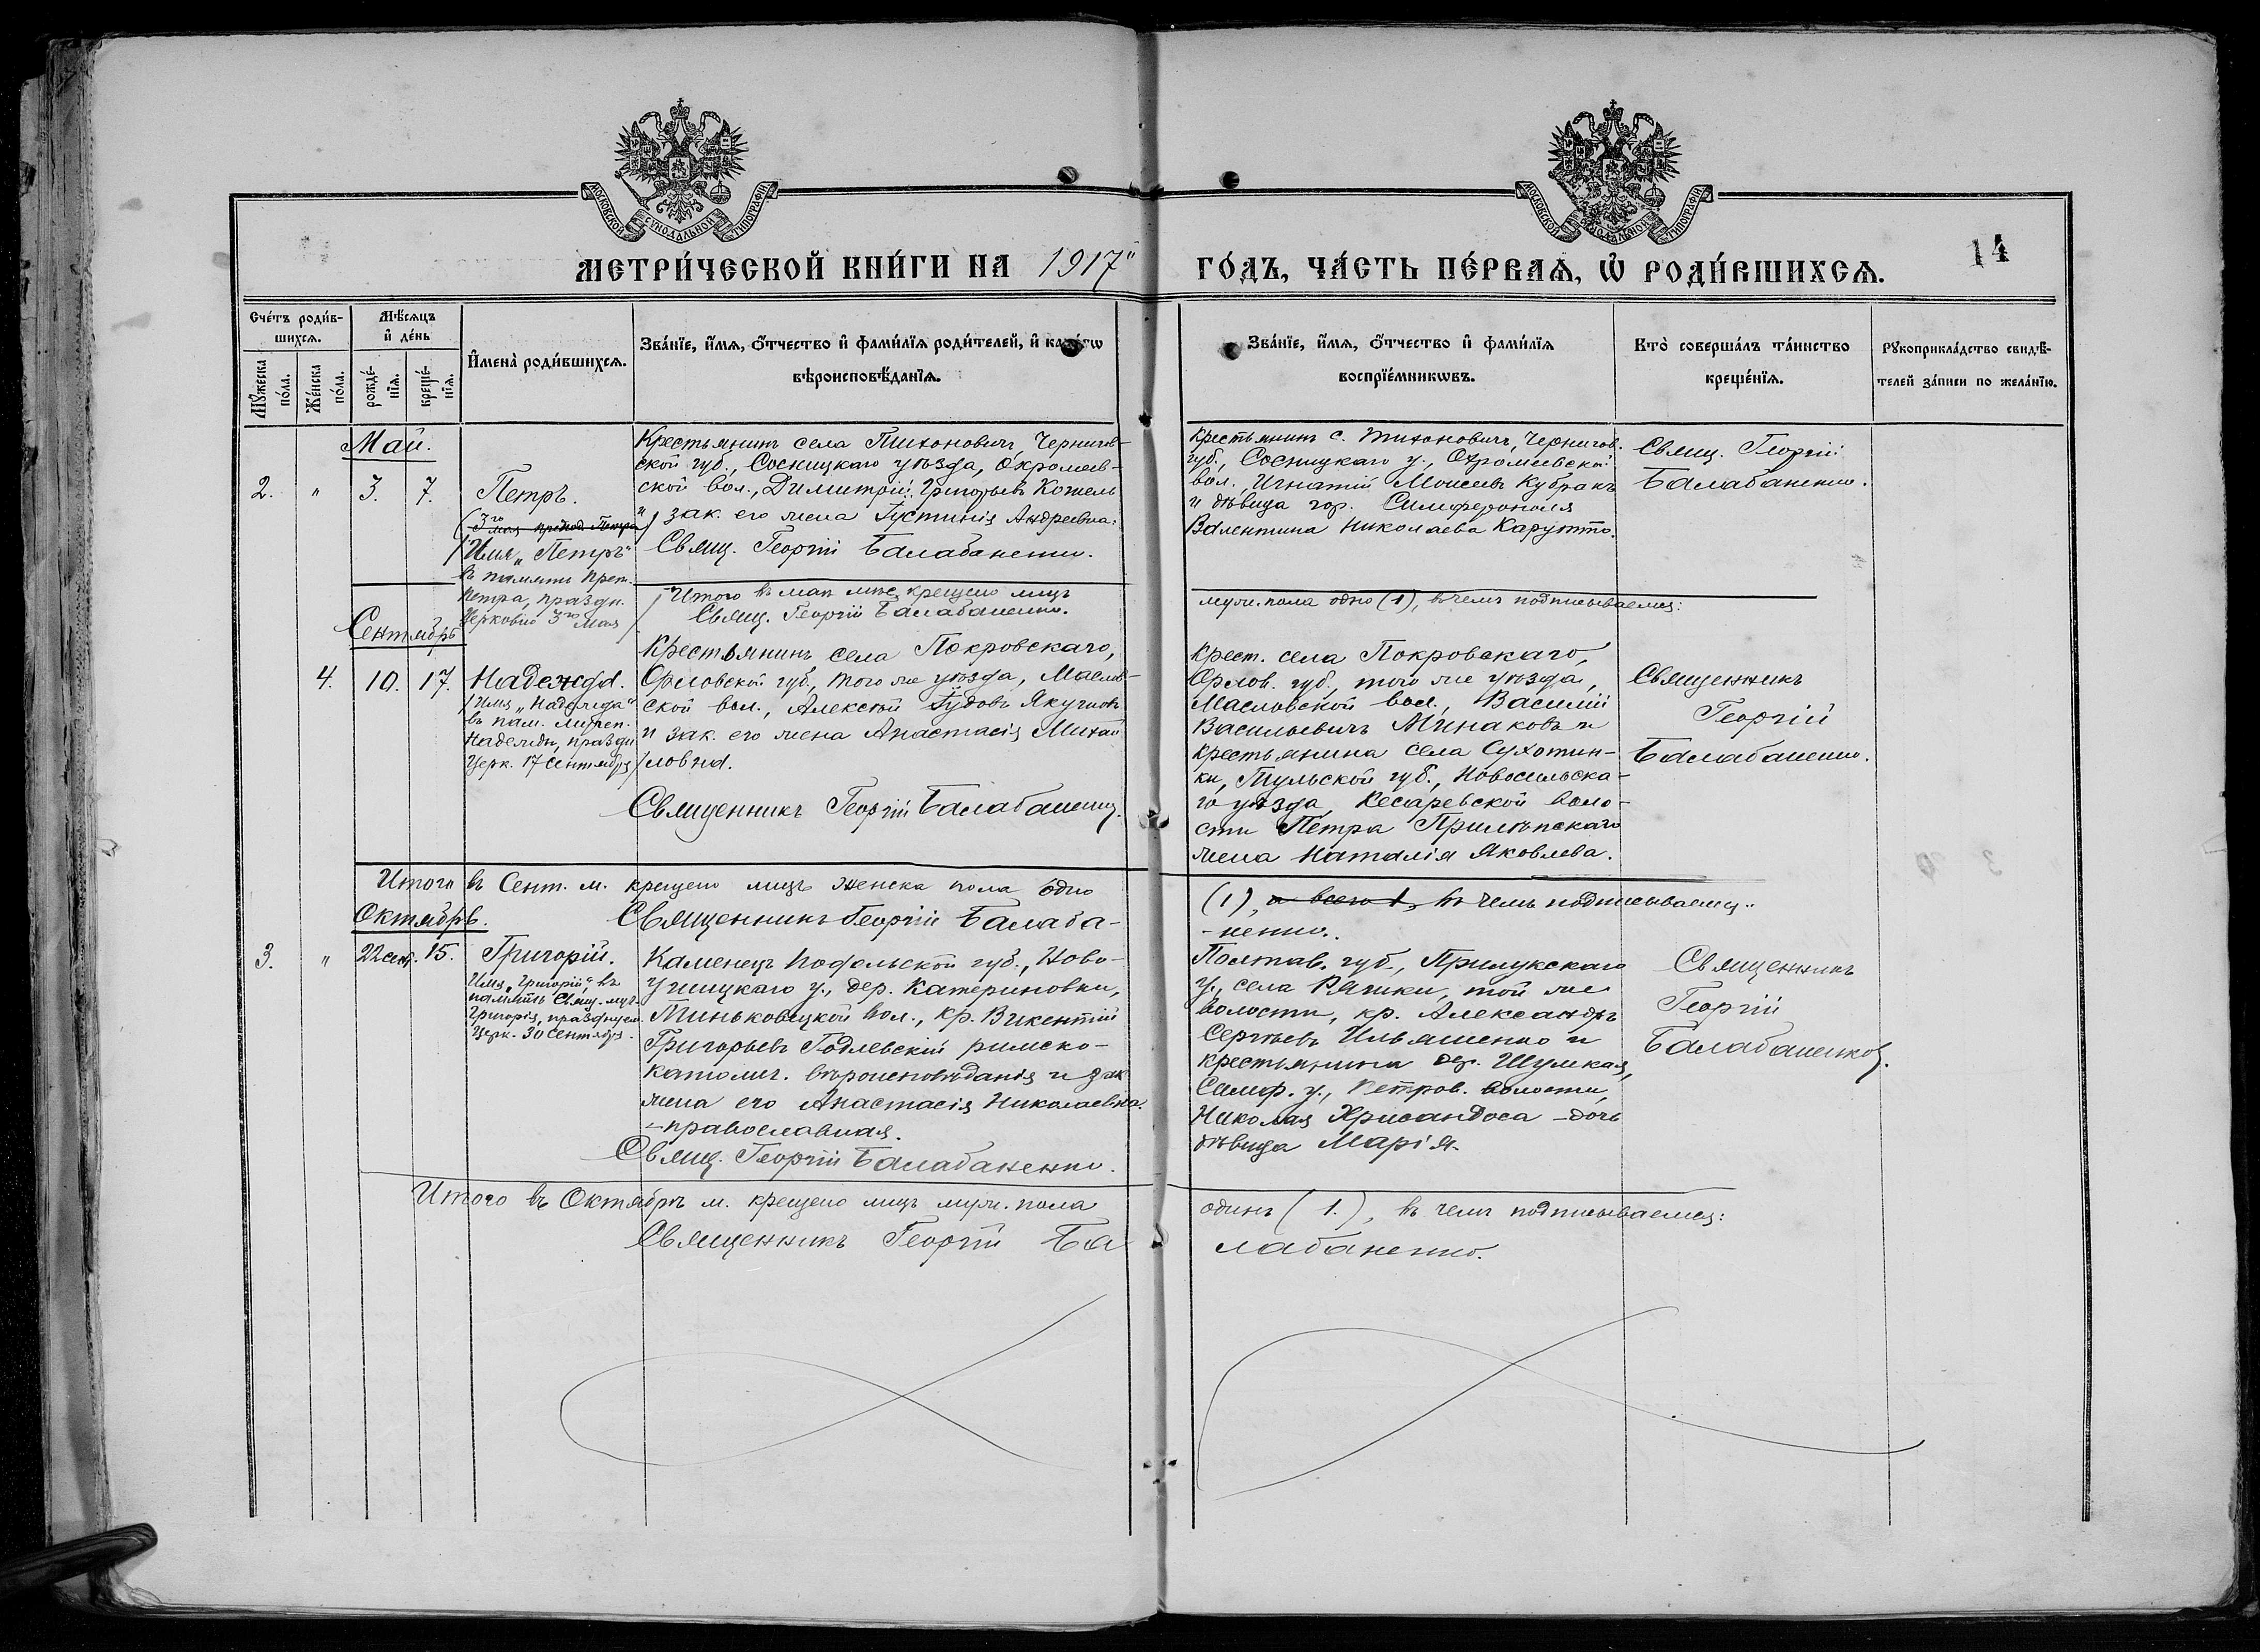 МОСКОВСКОЙ СУНОДАЛЬНОЙ ТИПОГРАФІИ
МОСКОВСКОЙ СУНОДАЛЬНОЙ ТИПОГРАФІИ
МЕТРИ́ЧЕСКОЙ КНИ́ГИ НА 1917"
ГО́ДЪ, ЧА́СТЬ ПЕ́РВАѦ, Ѡ РОДИ́ВШИХСѦ.
14
Сче́тъ роди́в-
шихсѧ.
Мѣ́сѧцъ
и де́нь
Мꙋ́жеска
по́ла.
Же́нска
по́ла.
рожде́-
нїѧ.
креще́-
нїѧ.
Имена̀ роди́вшихсѧ.
Зва́нїе, и́мѧ, о́тчество и фами́лїѧ роди́телей, и како́гѡ
вѣроисповѣ́данїѧ.
Зва́нїе, и́мѧ, о́тчество и фами́лїѧ
воспрїе́мникѡвъ.
Кто̀ соверша́лъ та́инство
креще́нїѧ.
Рꙋкоприкла́дство свидѣ́-
телей за́писи по жела́нїю.
Май.
2. " 3. 7. Петръ.
(3го мая препод. Петра)
/Имя „Петръ"
въ память преп.
Петра, праздн.
Церковію 3го Мая/
Крестьянинъ села Тихоновичъ, Чернигов-
ской губ., Сосницкаго уѣзда, Охромеев-
ской вол., Димитрій Григорьевъ Котель
и зак. его жена Густинія Андреевна.
Свящ. Георгій Балабаненко.
Крестьянинъ с. Тихоновичъ, Чернигов.
губ., Сосницкаго у., Охромеевской
вол., Игнатій Моисеевъ Кубракъ
и дѣвица гор. Симферополя
Валентина Николаева Карутто.
Свящ. Георгій
Балабаненко.
Итого въ маѣ м-цѣ крещено лицъ
муж. пола одно (1), въ чемъ подписываемся:
Свящ. Георгій Балабаненко.
Сентябрь
4. 10. 17. Надежда.
/Имя „Надежда"
въ пам. мучен.
Надежды, праздн.
Церк. 17 Сентября/
Крестьянинъ села Покровскаго,
Орловской губ., того же уѣзда, Маслов-
ской вол., Алексѣй Гудовъ Якушовъ
и зак. его жена Анастасія Михай
ловна.
Священникъ Георгій Балабаненко.
Крест. села Покровскаго,
Орлов. губ., того же уѣзда,
Масловской вол., Василій
Васильевичъ Минаковъ и
крестьянина села Сухотин-
ки, Тульской губ., Новосильска-
го уѣзда, Кесаревской воло-
сти Петра Прилѣпскаго
жена Наталія Яковлева.
Священникъ
Георгій
Балабаненко.
Итого въ Сент. м. крещено лицъ женска пола одно
(1), и всего 1, въ чемъ подписываемся:
Священникъ Георгій Балаба-
-ненко.
Октябрь.
3. " 22 сент. 15. Григорій.
Имя „Григорій", въ
память Свящ.-муч.
Григорія, празднуем.
Церк. 30 Сентября.
Каменецъ Подольской губ., Ново-
Ушицкаго у., дер. Катериновки,
Миньковецкой вол., кр. Викентій
Григорьевъ Годлевскій римско-
католич. вѣроисповѣданія и зак
жена его Анастасія Николаевна.
-православная.
Свящ. Георгій Балабаненко.
Полтав. губ., Прилукскаго
у., села Ряшки, той же
волости, кр. Александръ
Сергѣевъ Ильяшенко и
крестьянина дер. Шумхая,
Симф. у., Петров. волости,
Николая Хрисандоса - дочь
дѣвица Марія.
Священникъ
Георгій
Балабаненко.
Итого въ Октябрѣ м. крещено лицъ муж. пола
одинъ (1.), въ чемъ подписываемся:
Священникъ Георгій Ба
лабаненко.